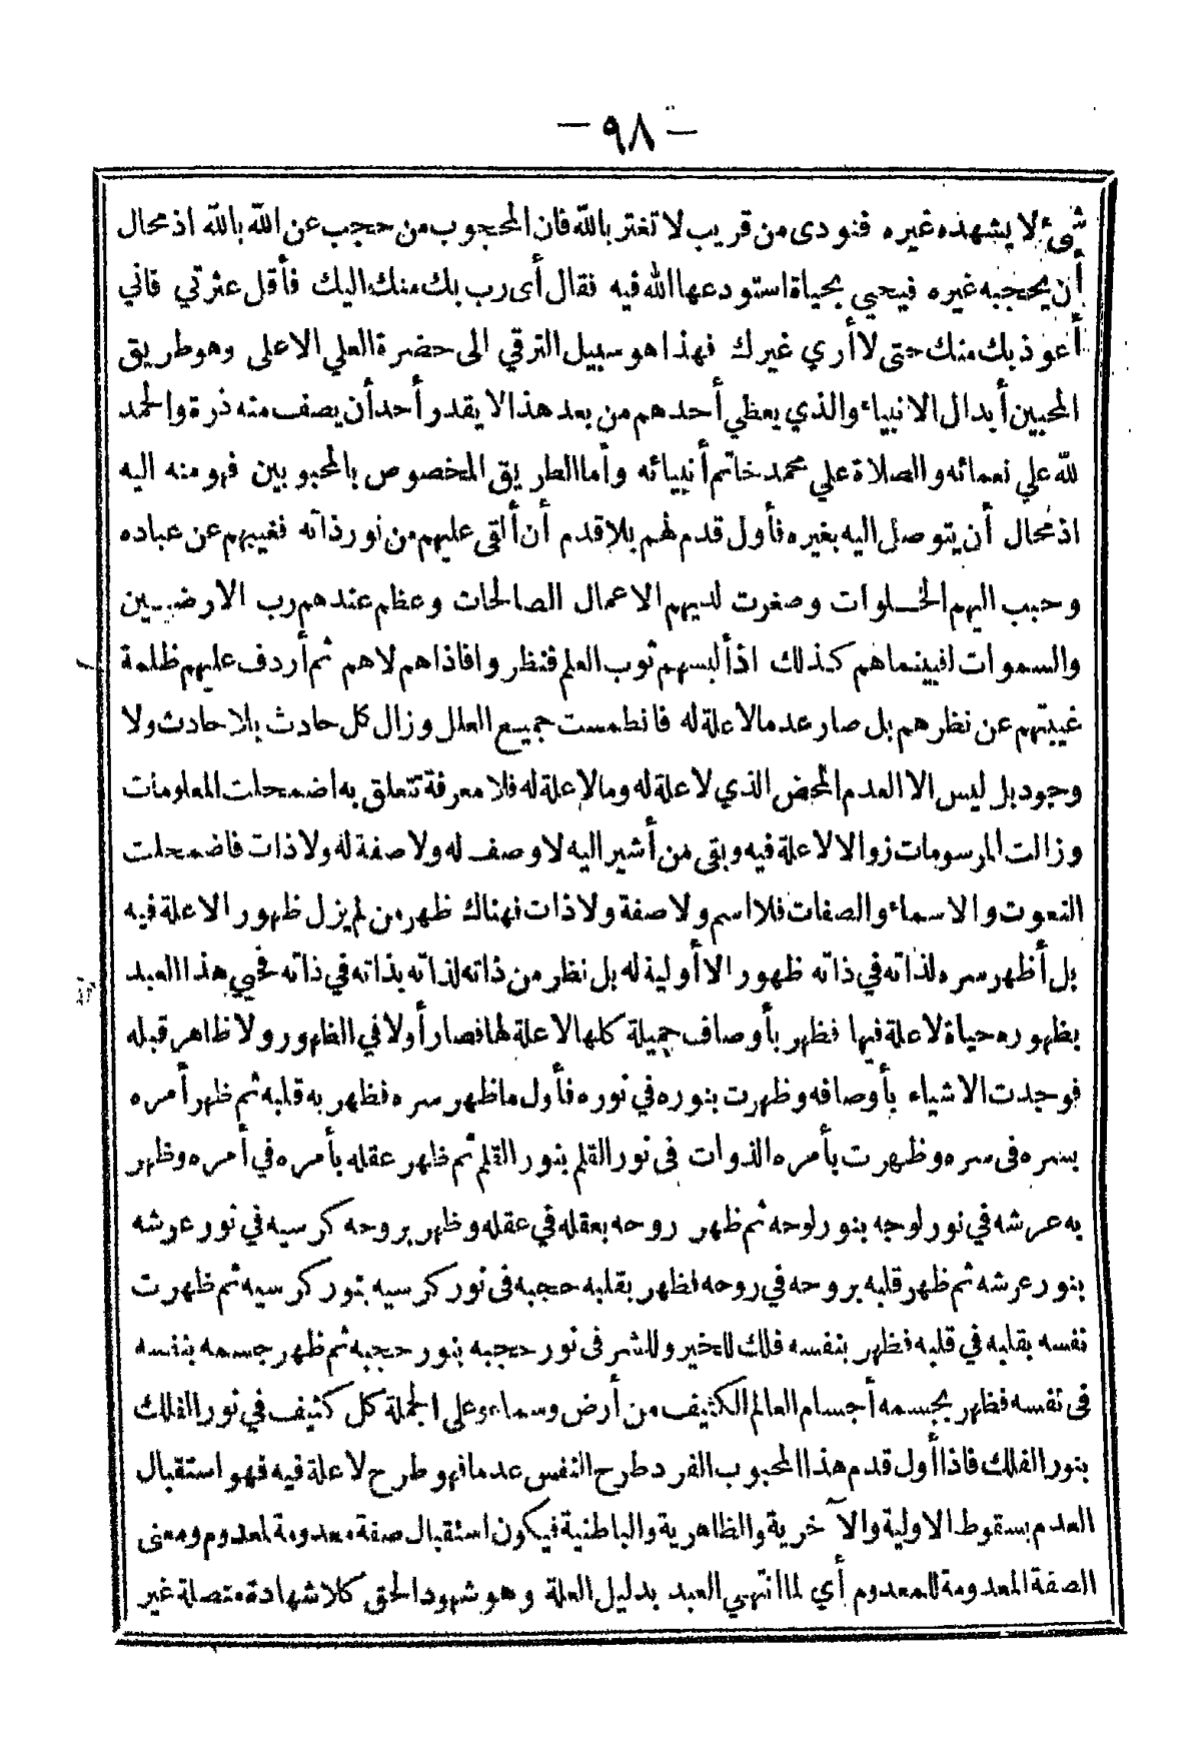 — ٩٨ —
شئ لا يشهده غيره فنودى من قريب لا تغتر بالله فان المحجوب من حجب عن الله بالله اذ محال
أن يحجبه غيره فيحيي بحياة استودعها الله فيه فقال أى رب بك منك اليك فأقل عثرتي فاني
أعوذ بك منك حتى لا أري غيرك فهذا هو سبيل الترقي الى حضرة العلي الاعلى وهو طريق
المحبين أبدال الانبياء والذي يعطي أحدهم من بعد هذا لا يقدر أحد أن يصف منه ذرة والحمد
لله علي نعمائه والصلاة علي محمد خاتم أنبيائه وأما الطريق المخصوص بالمحبوبين فهو منه اليه
اذ محال أن يتوصل اليه بغيره فأول قدم لهم بلا قدم أن ألقى عليهم من نور ذاته فغيبهم عن عباده
وحبب اليهم الخلوات وصغرت لديهم الاعمال الصالحات وعظم عندهم رب الارضيين
والسموات فبينما هم كذلك اذ ألبسهم ثوب العلم فنظروا فاذا هم لا هم ثم أردف عليهم ظلمة
غيبتهم عن نظرهم بل صار عدما لا علة له فانطمست جميع العلل وزال كل حادث بلا حادث ولا
وجود بل ليس الا العدم المحض الذي لا علة له وما لا علة له فلا معرفة تتعلق به اضمحلت المعلومات
وزالت المرسومات زوالا لا علة فيه وبقى من أشير اليه لا وصف له ولا صفة له ولا ذات فاضمحلت
النعوت والاسماء والصفات فلا اسم ولا صفة ولا ذات فهناك ظهر من لم يزل ظهورا لا علة فيه
بل أظهر سره لذاته في ذاته ظهورا لا أولية له بل نظر من ذاته لذاته بذاته في ذاته فحيي هذا العبد
بظهوره حياة لا علة فيها فظهر بأوصاف جميلة كلها لا علة لها فصار أولا في الظهور ولا ظاهر قبله
فوجدت الاشياء بأوصافه وظهرت بنوره في نوره فأول ما ظهر سره فظهر به قلبه ثم ظهر أمره
بسره فى سره وظهرت بأمره الذوات فى نور القلم بنور القلم ثم ظهر عقله بأمره في أمره وظهر
به عرشه في نور لوحه بنور لوحه ثم ظهر روحه بعقله في عقله وظهر بروحه كرسيه في نور عرشه
بنور عرشه ثم ظهر قلبه بروحه في روحه فظهر بقلبه حجبه فى نور كرسيه بنور كرسيه ثم ظهرت
نفسه بقلبه في قلبه فظهر بنفسه فلك للخير وللشر فى نور حجبه بنور حجبه ثم ظهر جسمه بنفسه
فى نفسه فظهر بجسمه أجسام العالم الكثيف من أرض وسماء وعلى الجملة كل كثيف في نور الفلك
بنور الفلك فاذا أول قدم هذا المحبوب الفرد طرح النفس عدما فهو طرح لا علة فيه فهو استقبال
العدم بسقوط الاولية والآخرية والظاهرية والباطنية فيكون استقبال صفة معدومة لمعدوم ومعنى
الصفة المعدومة للمعدوم أي لما انتهي العبد بدليل العلة وهو شهود الحق كلا شهادة متصلة غير